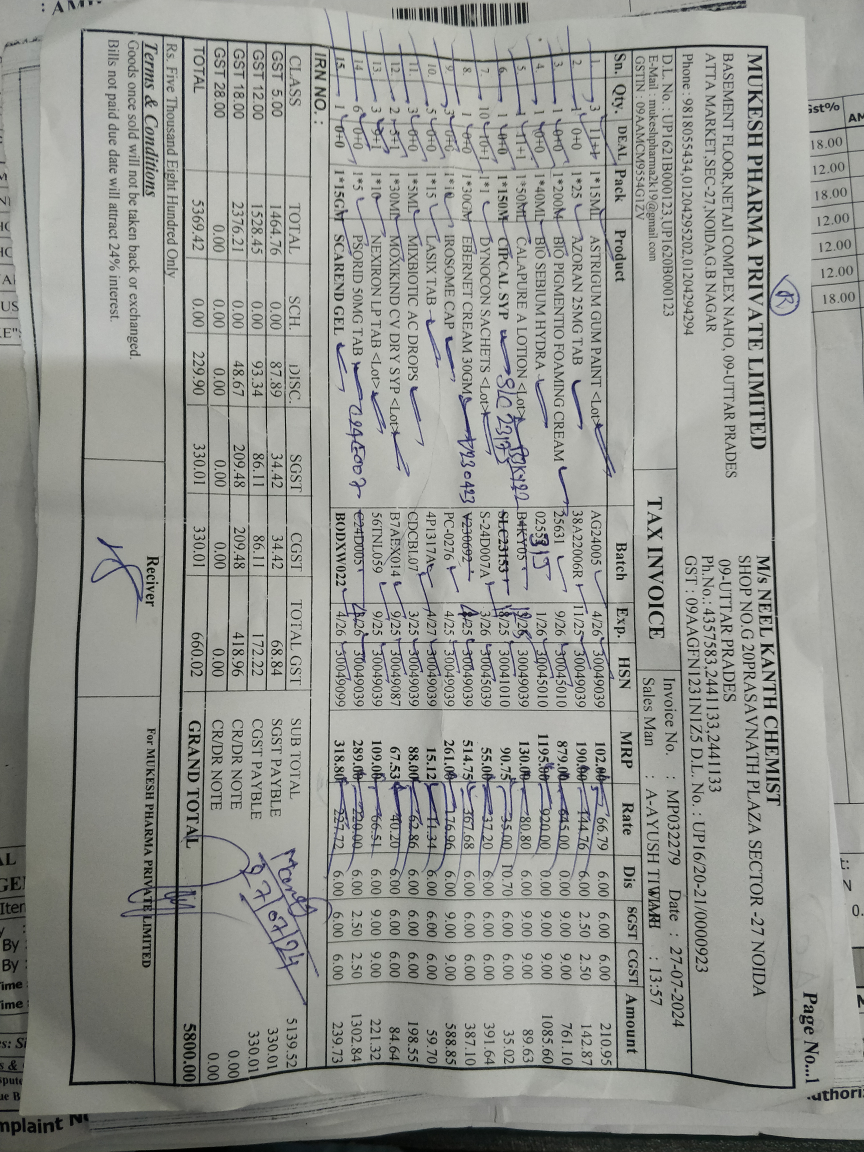 Page No...1
MUKESH PHARMA PRIVATE LIMITED
BASEMENT FLOOR,NETAJI COMPLEX NAHO, 09-UTTAR PRADES
ATTA MARKET,SEC-27,NOIDA,G.B NAGAR
Phone : 9818055434,01204295202,01204294294
D.L. No. : UP1621B000123,UP1620B000123
E-Mail : mukeshpharma2k19@gmail.com
GSTIN : 09AAMCM9554G1ZV
M/s NEEL KANTH CHEMIST
SHOP NO.G 20PRASAVNATH PLAZA SECTOR -27 NOIDA
09-UTTAR PRADES
Ph.No.: 4357583,2441133,2441133
GST : 09AAGFN1231N1Z5 D.L. No. : UP16/20-21/0000923
TAX INVOICE
Invoice No. : MP032279 Date : 27-07-2024
Sales Man : A-AYUSH TIWARI : 13:57
Sn. Qty. DEAL Pack Product Batch Exp. HSN MRP Rate Dis SGST CGST Amount
1. 3 11+1 1*15ML ASTRIGUM GUM PAINT <Lot> AG24005 4/26 30049039 102.00 66.79 6.00 6.00 6.00 210.95
2. 1 0+0 1*25 AZORAN 25MG TAB 38A22006R 11/25 30049039 190.00 144.76 6.00 2.50 2.50 142.87
3. 1 0+0 1*200M BIO PIGMENTIO FOAMING CREAM 25631 9/26 30045010 879.00 645.00 0.00 9.00 9.00 761.10
4. 1 0+0 1*40ML BIO SEBIUM HYDRA 1/26 30045010 1195.00 920.00 0.00 9.00 9.00 1085.60
5. 1 11+1 1*50ML CALAPURE A LOTION <Lot> B4KY05 30049039 130.00 80.80 6.00 9.00 9.00 89.63
6. 1 0+0 1*150M CIPCAL SYP SLC23153 30041010 90.75 35.00 10.70 6.00 6.00 35.02
7. 10 10+1 1*1 DYNOCON SACHETS <Lot> S-24D007A 3/26 30045039 55.00 37.20 6.00 6.00 6.00 391.64
8. 1 0+0 1*30GM EBERNET CREAM 30GM V230692 30049039 514.75 367.68 6.00 6.00 6.00 387.10
9. 3 0+0 1*10 IROSOME CAP PC-0276 4/25 30049039 261.00 176.96 6.00 9.00 9.00 588.85
10. 5 0+0 1*15 LASIX TAB 4P1317A 4/27 30049039 15.12 11.34 6.00 6.00 6.00 59.70
11. 3 0+0 1*5ML MIXBIOTIC AC DROPS CDCBL07 3/25 30049039 88.00 62.86 6.00 6.00 6.00 198.55
12. 2 5+1 1*30ML MOXIKIND CV DRY SYP <Lot> B7AEX014 9/25 30049087 67.53 40.20 6.00 6.00 6.00 84.64
13. 3 9+1 1*10 NEXIRON LP TAB <Lot> 56TNL059 9/25 30049039 109.00 66.51 6.00 9.00 9.00 221.32
14. 6 0+0 1*5 PSORID 50MG TAB C24D005 30049039 289.00 220.00 6.00 2.50 2.50 1302.84
15. 1 0+0 1*15GM SCAREND GEL BODXW022 4/26 30049099 318.80 227.72 6.00 6.00 6.00 239.73
IRN NO. :
CLASS TOTAL SCH. DISC. SGST CGST TOTAL GST
GST 5.00 1464.76 0.00 87.89 34.42 34.42 68.84
GST 12.00 1528.45 0.00 93.34 86.11 86.11 172.22
GST 18.00 2376.21 0.00 48.67 209.48 209.48 418.96
GST 28.00 0.00 0.00 0.00 0.00 0.00 0.00
TOTAL 5369.42 0.00 229.90 330.01 330.01 660.02
SUB TOTAL 5139.52
SGST PAYBLE 330.01
CGST PAYBLE 330.01
CR/DR NOTE 0.00
CR/DR NOTE 0.00
GRAND TOTAL 5800.00
27/07/24
Rs. Five Thousand Eight Hundred Only
Terms & Conditions
Goods once sold will not be taken back or exchanged.
Bills not paid due date will attract 24% interest.
Reciver
For MUKESH PHARMA PRIVATE LIMITED